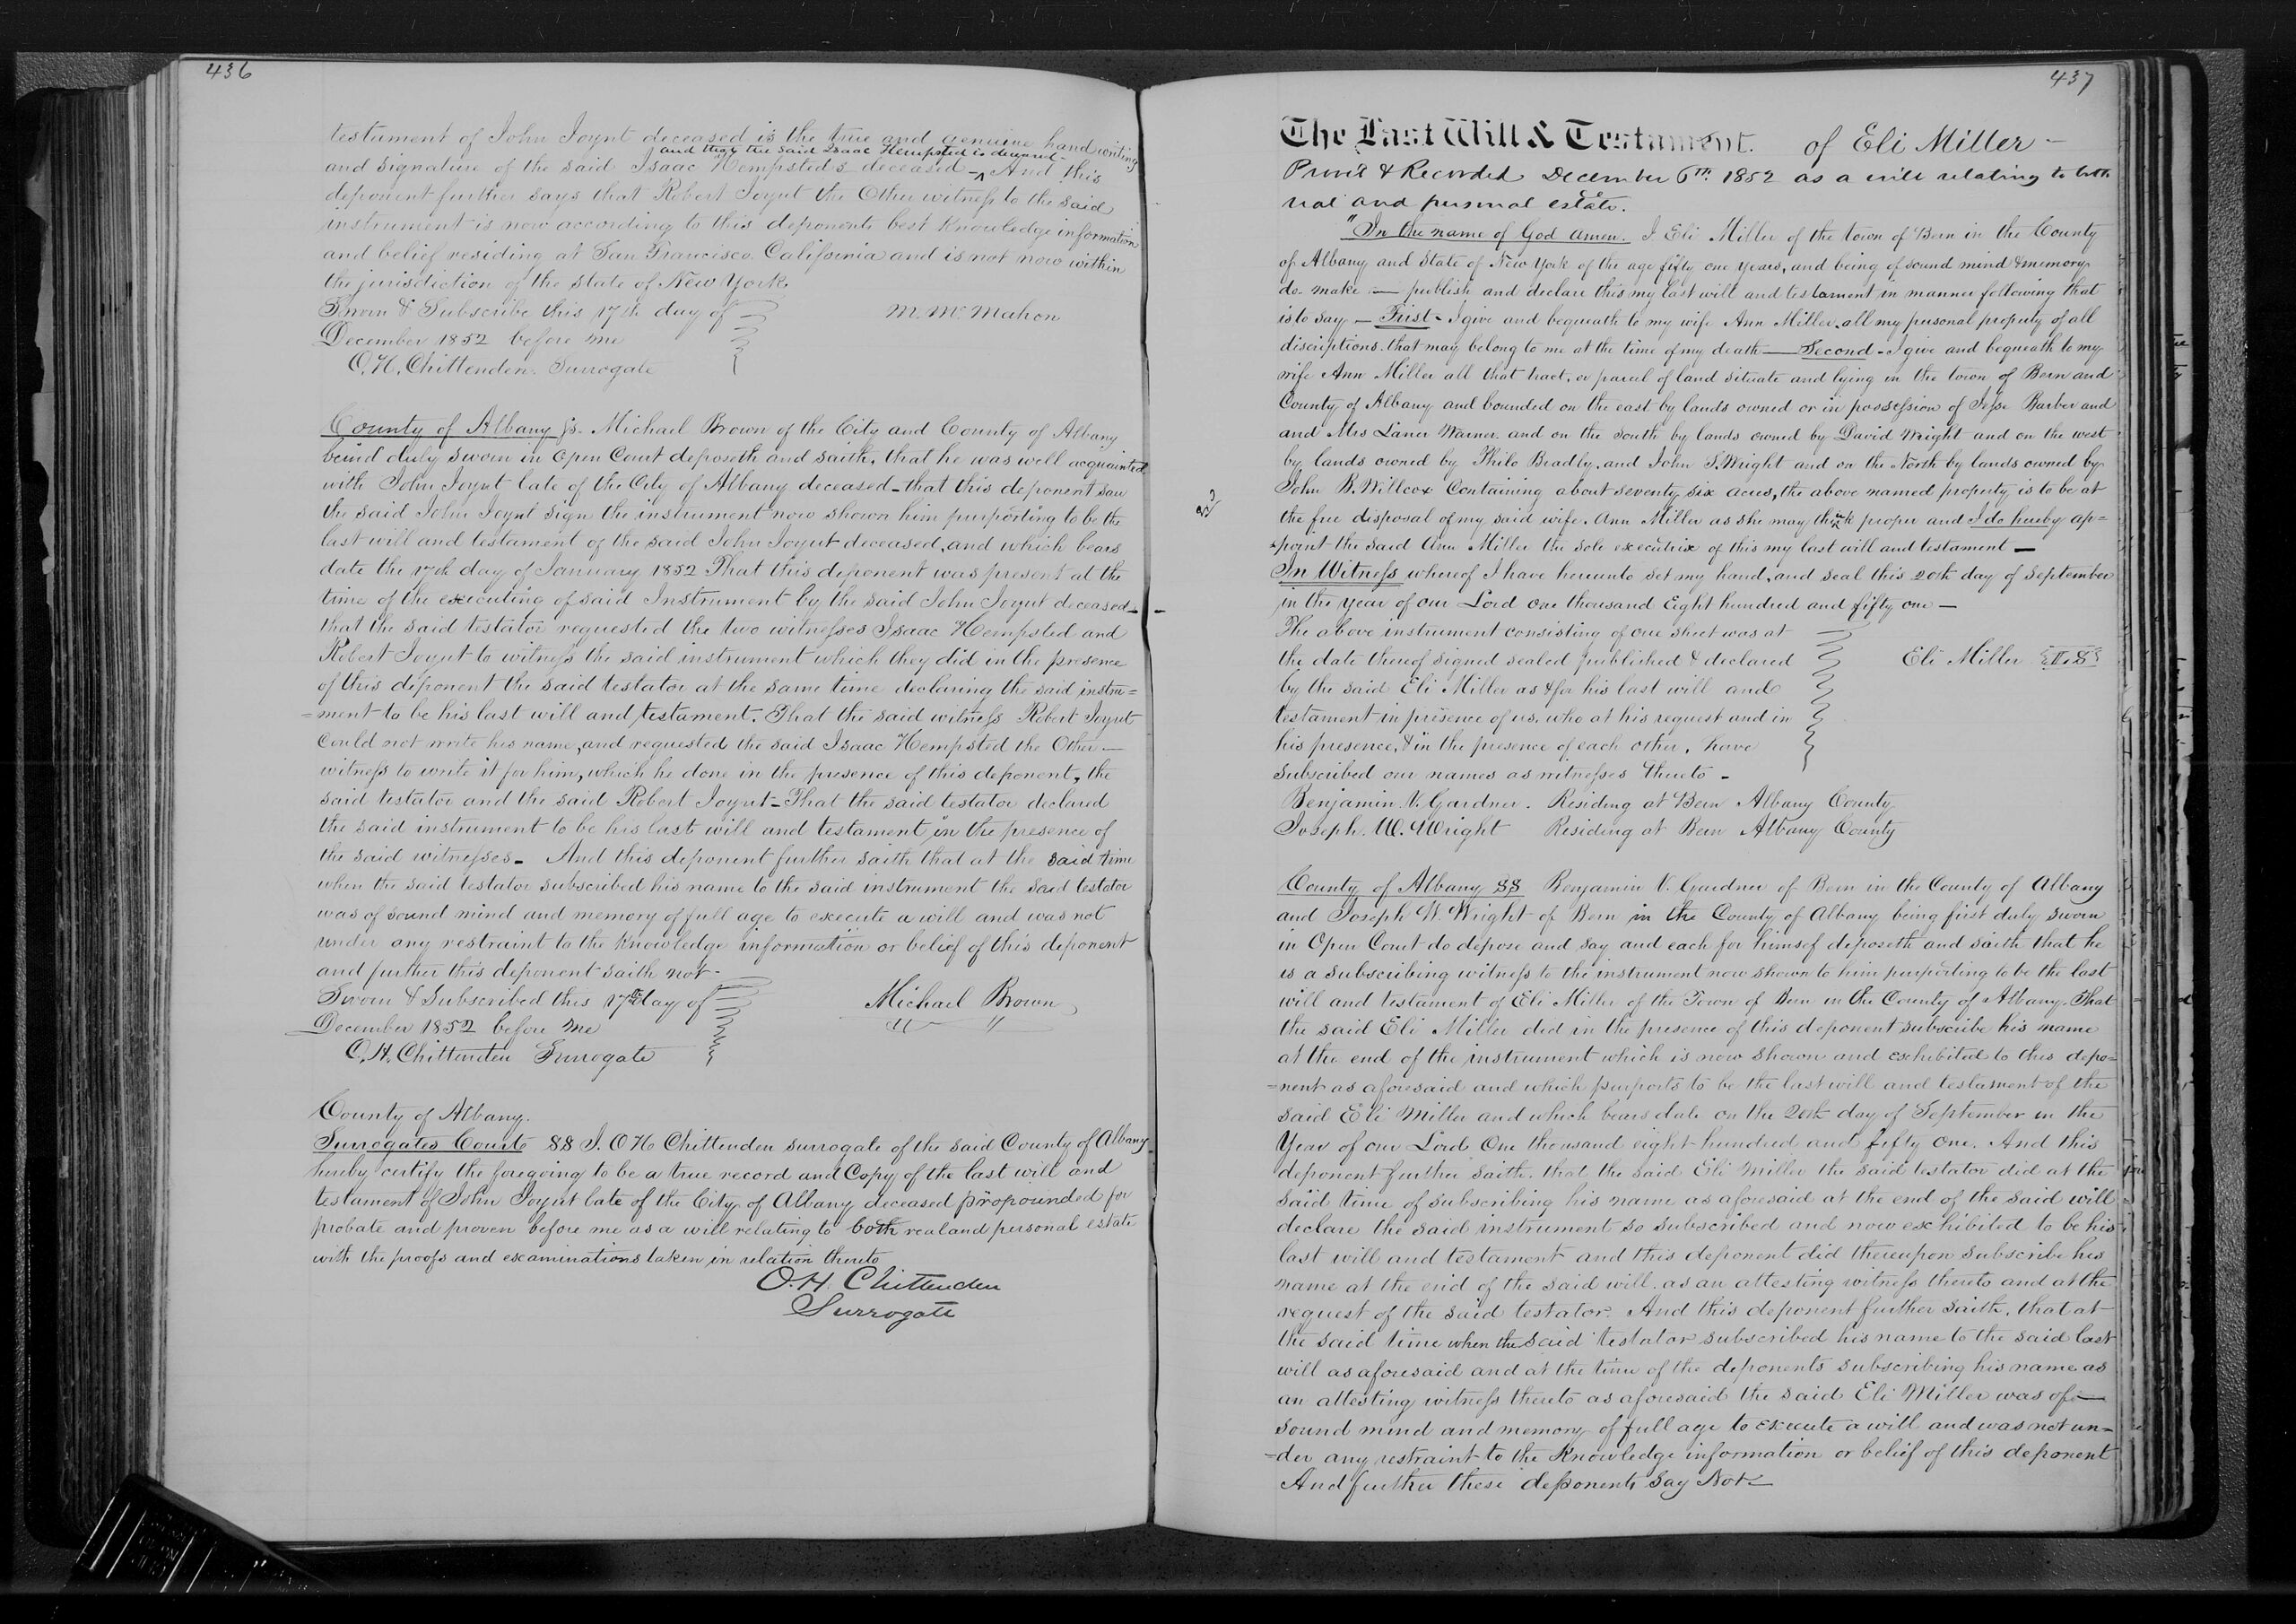 436
testument of John Joynt deceased is the true and genuine handwriting
and that the said Isaac Hempsted is deceased
and signature of the said Isaac Hempsteds deceased - ^ And this
deponent further says that Robert Joynt the Other witness to the said
instrument is now according to this deponents best Knowledge information
and belief residing at San Francisco California and is not now within
the jurisdiction of the state of New York.
Sworn & Subscribe this 17th day of
M. McMahon
December 1852 before me
O.H. Chittenden Surrogate
County of Albany ss. Michael Brown of the City and County of Albany
being duly sworn in Open Court deposeth and saith, that he was well acquainted
with John Joynt late of the City of Albany deceased - that this deponent saw
the said John Joynt sign the instrument now shown him purporting to be the
last will and testament of the said John Joynt deceased, and which bears
date the 17th day of January 1852 That this deponent was present at the
time of the executing of said Instrument by the said John Joynt deceased -
that the said testator requested the two witnesses Isaac Hempsted and
Robert Joynt to witness the said instrument which they did in the presence
of this deponent the said testator at the same time declaring the said instru=
=ment to be his last will and testament. That the said witness Robert Joynt
Could not write his name, and requested the said Isaac Hempsted the Other —
witness to write it for him, which he done in the presence of this deponent, the
said testator and the said Robert Joynt - That the said testator declared
the said instrument to be his last will and testament in the presence of
the said witnesses - And this deponent further saith that at the said time
when the said testator subscribed his name to the said instrument the said testator
was of sound mind and memory of full age to execute a will and was not
under any restraint to the Knowledge information or belief of this deponent
and further this deponent saith not -
Sworn & Subscribed this 17th day of
Michael Brown
December 1852 before me
" "
O.H. Chittenden Surrogate
County of Albany.
Surrogates Courts SS I. O H Chittenden surrogate of the said County of Albany
hereby certify the foregoing to be a true record and Copy of the last will and
testament of John Joynt late of the City of Albany deceased propounded for
probate and proven before me as a will relating to both real and personal estate
with the proofs and examinations taken in relation thereto
O. H. Chittenden
Surrogate
437
The Last Will & Testament. of Eli Miller —
Proved & Recorded December 6th 1852 as a will relating to both
real and personal estate.
"In the name of God amen. I Eli Miller of the town of Bern in the County
of Albany and State of New York of the age fifty one years, and being of sound mind & memory
do make — publish and declare this my last will and testament in manner following that
is to say — First - I give and bequeath to my wife Ann Miller all my personal property of all
discriptions that may belong to me at the time of my death — Second - I give and bequeath to my
wife Ann Miller all that tract, or parcel of land situate and lying in the town of Bern and
County of Albany and bounded on the east by lands owned or in possession of Jesse Barber and
and Mrs Laner Warner and on the south by lands owned by David Wright and on the west
by lands owned by Philo Bradly, and John S. Wright and on the North by lands owned by
John B. Willcox Containing about seventy six acres, the above named property is to be at
the free disposal of my said wife, Ann Miller as she may think proper and I do hereby ap=
=point the said Ann Miller the sole executrix of this my last will and testament —
In Witness whereof I have hereunto set my hand, and seal this 20th day of September
in the year of our Lord one thousand Eight hundred and fifty one —
The above instrument consisting of one sheet was at
the date thereof signed sealed published & declared
Eli Miller L.S
by the said Eli Miller as & for his last will and
testament in presence of us, who at his request and in
his presence, & in the presence of each other, have
subscribed our names as witnesses thereto -
Benjamin V. Gardner. Residing at Bern Albany County
Joseph. W. Wright Residing at Bern Albany County
County of Albany SS Benjamin V. Gardner of Bern in the County of Albany
and Joseph W. Wright of Bern in the County of Albany being first duly sworn
in Open Court do depose and say and each for himsef deposeth and saith that he
is a subscribing witness to the instrument now shown to him purporting to be the last
will and testament of Eli Miller of the Town of Bern in the County of Albany. That
the said Eli Miller did in the presence of this deponent subscribe his name
at the end of the instrument which is now shown and exhibited to this depo=
=nent as aforesaid and which purports to be the last will and testament of the
said Eli Miller and which bears date on the 20th day of September in the
Year of our Lord One thousand eight hundred and fifty one. And this
deponent further saith, that the said Eli Miller the said testator did at the
said time of subscribing his name as aforesaid at the end of the said will
declare the said instrument so subscribed and now exhibited to be his
last will and testament and this deponent did thereupon subscribe his
name at the end of the said will, as an attesting witness thereto and at the
request of the said testator. And this deponent further saith, that at
the said time when the said testator subscribed his name to the said last
will as aforesaid and at the time of the deponents subscribing his name as
an attesting witness thereto as aforesaid the said Eli Miller was of —
sound mind and memory of full age to execute a will and was not un=
=der any restraint to the Knowledge information or belief of this deponent
And further these deponents say Not —